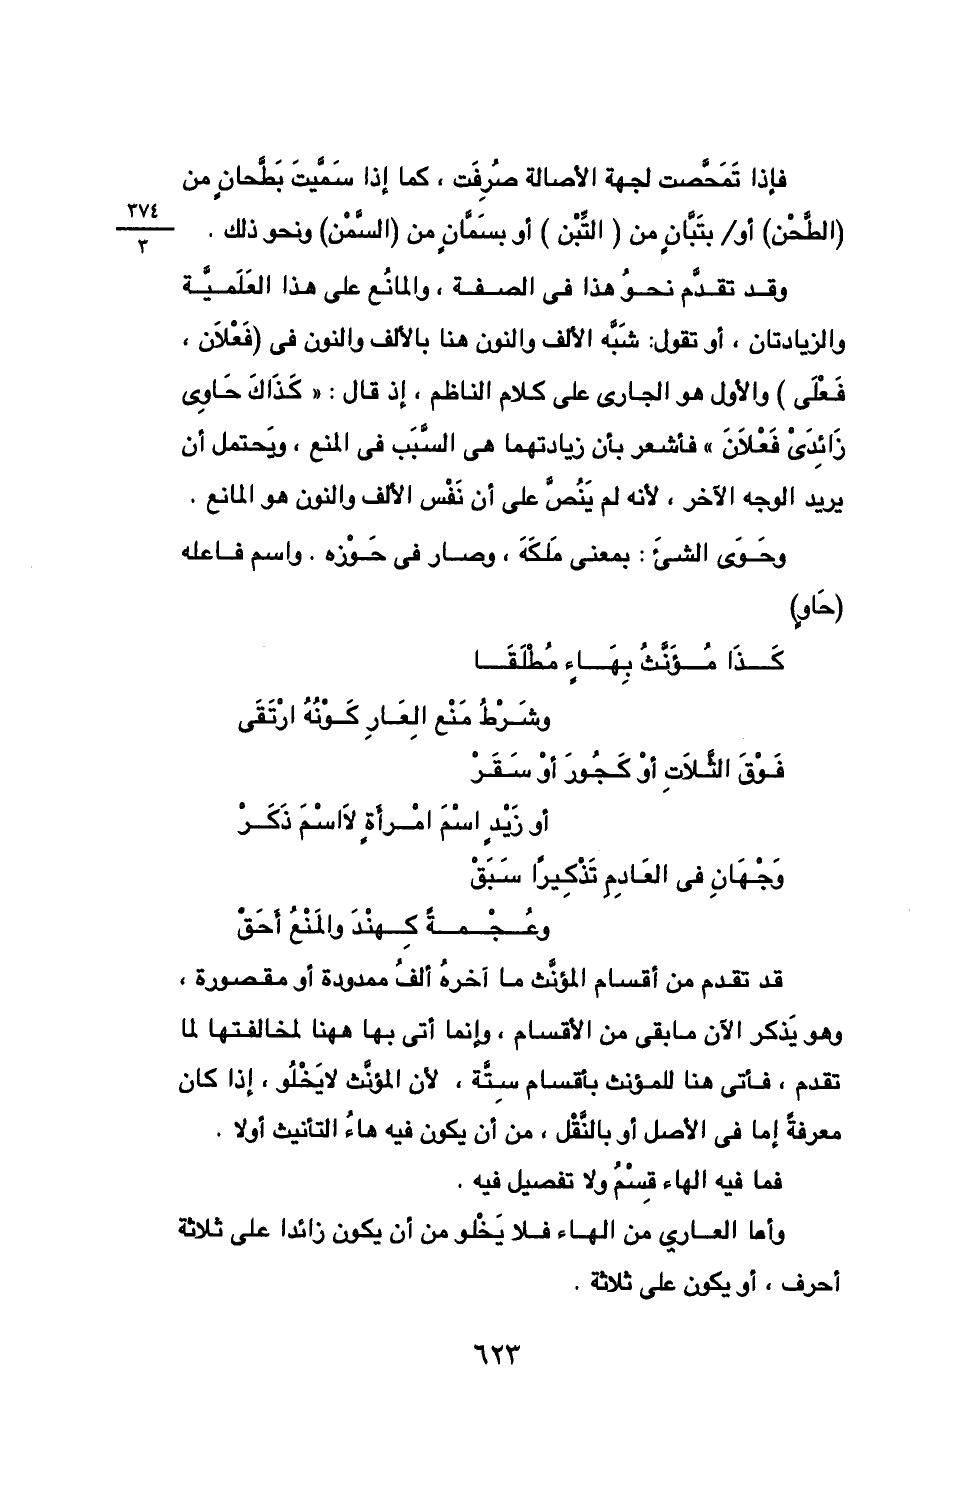 فإذا تَمَحَّصت لجهة الأصالة صُرِفَت ، كما إذا سَمَّيتَ بَطَّحانٍ من
(الطَّحْن) أو/ بتَبَّانٍ من ( التِّبْن ) أو بسَمَّانٍ من (السَّمْن) ونحو ذلك .
٣٧٤
٣
وقد تقدَّم نحوُ هذا فى الصفة ، والمانُع على هذا العَلَميَّة
والزيادتان ، أو تقول: شَبَّه الألف والنون هنا بالألف والنون فى (فَعْلاَن ،
فَعْلَى ) والأول هو الجارى على كلام الناظم ، إذ قال : « كَذَاكَ حَاوِى
زَائِدَىْ فَعْلاَنَ » فأشعر بأن زيادتهما هى السَّبَب فى المنع ، ويَحتمل أن
يريد الوجه الآخر ، لأنه لم يَنُصَّ على أن نَفْس الألف والنون هو المانع .
وحَوَى الشئَ : بمعنى مَلَكَهَ ، وصار فى حَوْزه . واسم فاعله
(حَاوٍ)
كَذَا مُؤَنَّثُ بِهَاءٍ مُطْلَقَا
وشَرْطُ مَنْع العَارِ كَوْنُهُ ارْتَقَى
فَوْقَ الثَّلاَثِ أوْ كَجُورَ أوْ سَقَرْ
أو زَيْدٍ اسْمَ امْرأَةٍ لاَاسْمَ ذَكَرْ
وَجْهَانِ فى العَادِمِ تَذْكِيرًا سَبَقْ
وعُجْمةً كِهنْدَ والَمنْعُ أَحَقّْ
قد تقدم من أقسام المؤنَّث ما آخرهُ ألفُ ممدودة أو مقصورة ،
وهو يَذكر الآن مابقى من الأقسام ، وإنما أتى بها ههنا لمخالفتها لما
تقدم ، فأتى هنا للمؤنث بأقسام سِتَّة ، لأن المؤنَّث لايَخْلُو ، إذا كان
معرفةً إما فى الأصل أو بالنَّقْل ، من أن يكون فيه هاءُ التأنيث أولا .
فما فيه الهاء قِسْمُ ولا تفصيل فيه .
وأما العاري من الهاء فلا يَخْلو من أن يكون زائدا على ثلاثة
أحرف ، أو يكون على ثلاثة .
٦٢٣